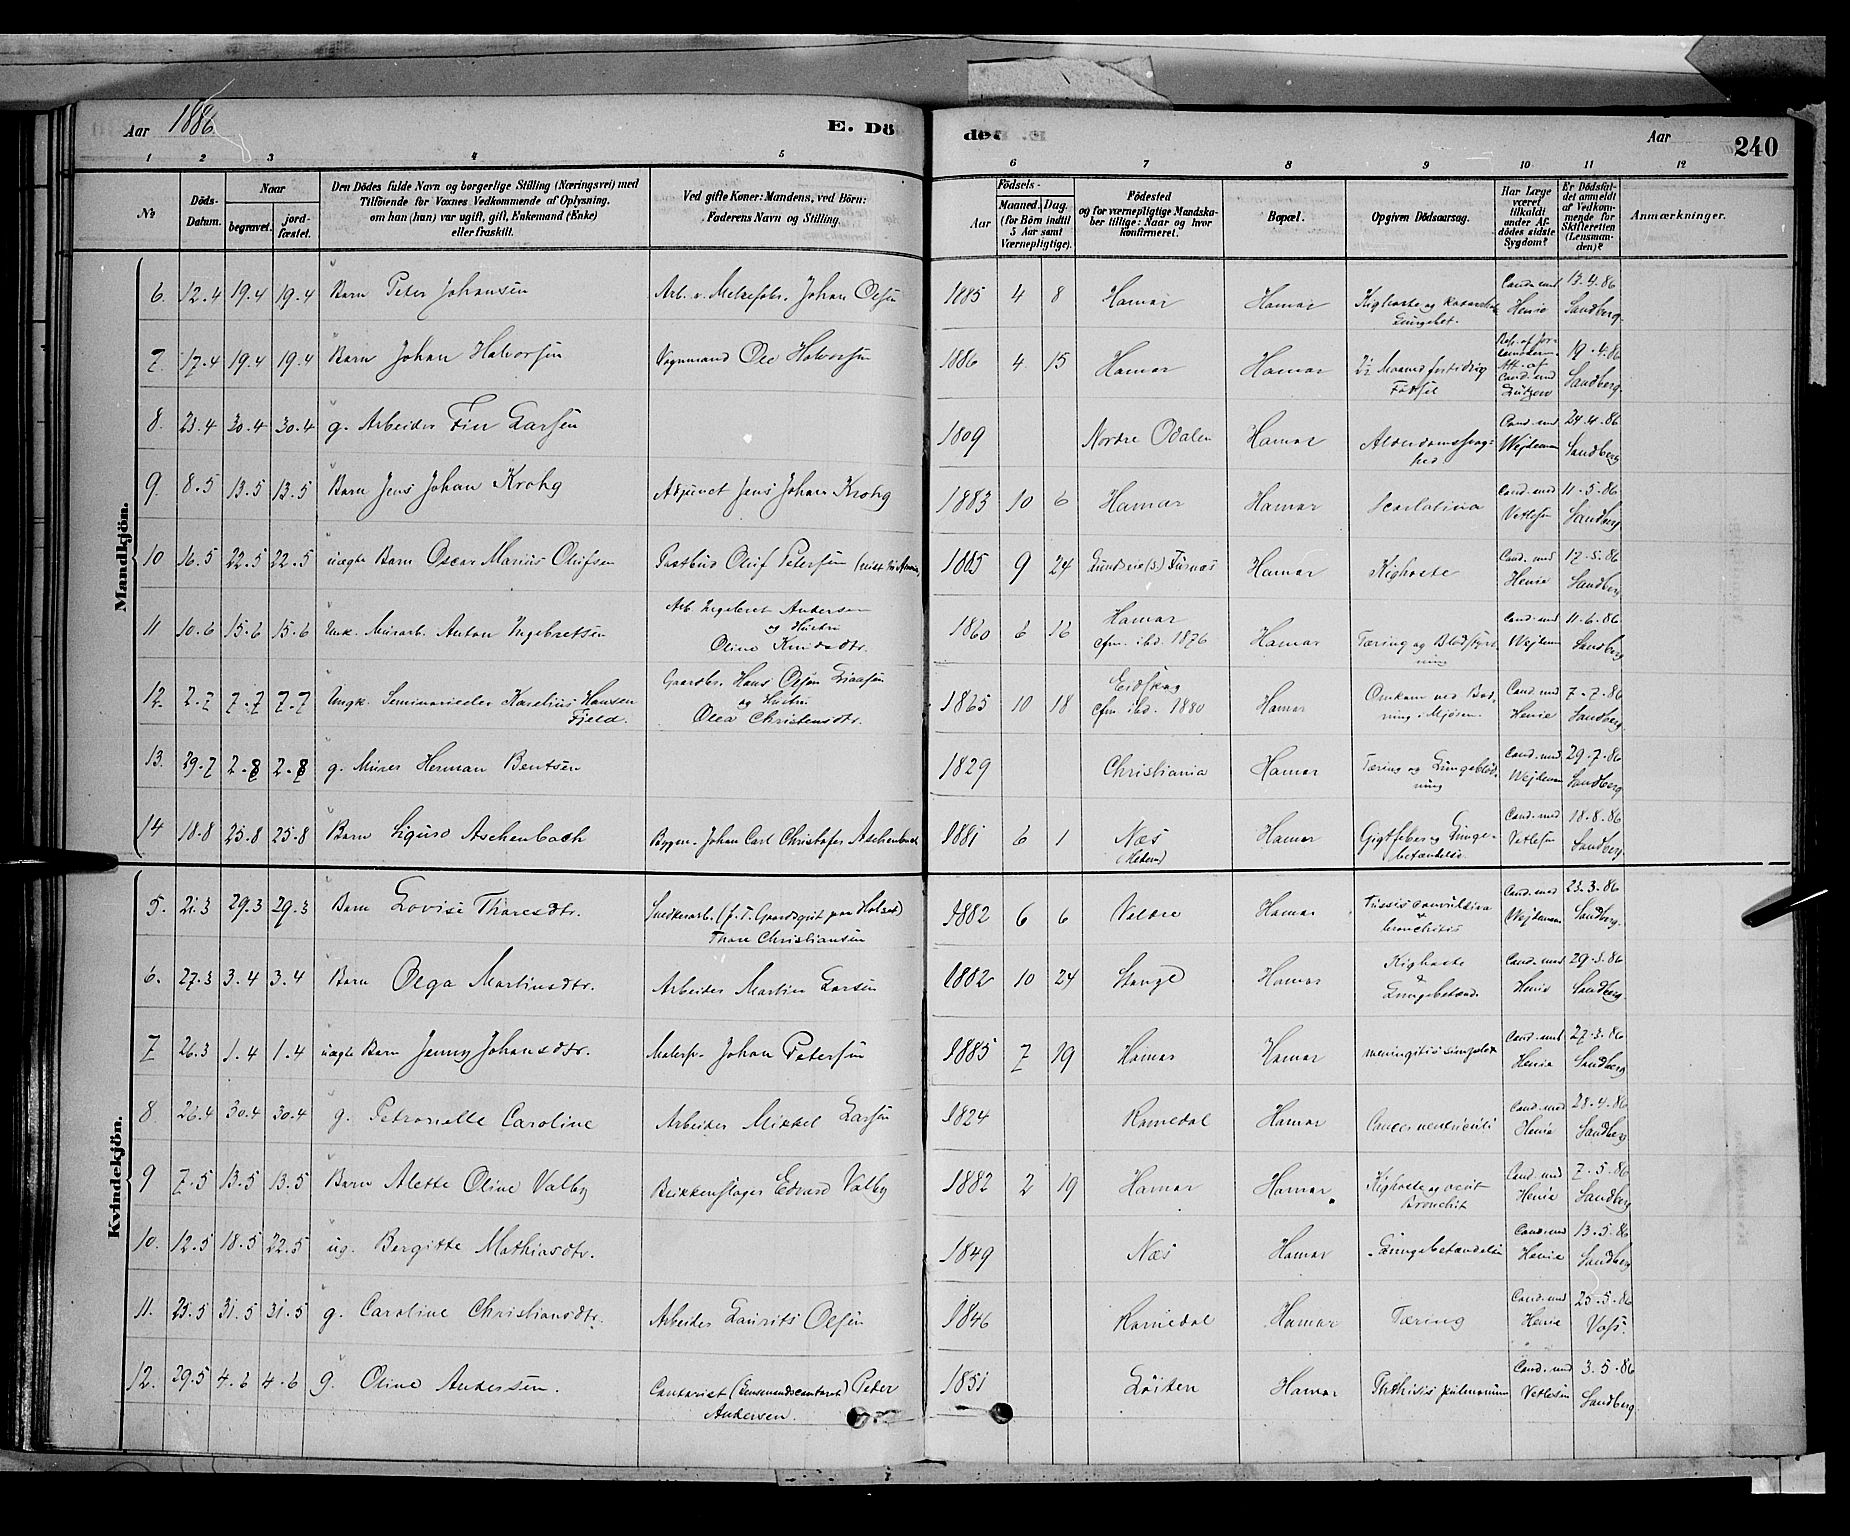 Aar 1886
E. Dö
de.
Aar
240
1 2 3 4 5 6 7 8 9 10 11 12
No
Döds-Datum.
Naar
begravet.
jord-fæstet.
Den Dödes fulde Navn og borgerlige Stilling (Næringsvei) med
Tilföiende for Voxnes Vedkommende af Oplysning,
om han (hun) var ugift, gift, Enkemand (Enke)
eller fraskilt.
Ved gifte Koner: Mandens, ved Börn:
Faderens Navn og Stilling.
Födsels-
Aar
Maaned. Dag.
(for Börn indtil
5 Aar samt
Værnepligtige).
Födested
og for værnepligtige Mandska-
ber tillige: Naar og hvor
konfirmeret.
Bopæl.
Opgiven Dödsaarsag.
Har Læge
været
tilkaldt
under Af-
dödes sidste
Sygdom?
Er Dödsfal-
det anmeldt
af Vedkom-
mende for
Skifteretten
(Lensman-
den)?
Anmærkninger.
Mandkjön.
6. 12.4 19.4 19.4 Barn Peter Johansen Johan Olsen 1885 4 8 Hamar Hamar Kighoste og Lungebet. Cand. med Henie 13.4.86 Sandberg.
7. 17.4 19.4 19.4 Barn Johan Halvorsen Vognmand Ole Halvorsen 1886 4 15 Hamar Hamar Fødsel Att. af Cand. med 19.4.86 Sandberg.
8. 23.4 30.4 30.4 g. Arbeider Finn Larsen 1809 Nordre Odalen Hamar Alderdomssvaghed Cand. med Wejdeman 24.4.86 Sandberg
9. 8.5 13.5 13.5 Barn Jens Johan Krohg Adjunct Jens Johan Krohg 1883 10 6 Hamar Hamar Scarlatina Cand. med Vetlesen 11.5.86 Sandberg
10 16.5 22.5 22.5 uægte Barn Oscar Marius Olufsen Postbud Oluf Petersen 1885 9 24 Furnæs Hamar Kighoste Cand. med Henie 17.5.86 Sandberg
11 10.6 15.6 15.6 Ungk. Murarb. Anton Ingebretsen Arb. Ingebret Andersen
og Hustru
Oline Knudsdtr. 1860 6 16 Hamar
cfm. ibd. 1876 Hamar Tæring og Blodstyrtning Cand. med Wejdeman 11.6.86 Sandberg
12. 2.7 7.7 7.7 Ungk. Seminarieelev Karelius Hansen
Fjeld. Gaardbr. Hans Olsen
og Hustru
Olea Christensdtr. 1865 10 18 Eidskog
cfm. ibd. 1880 Hamar Omkom ved Badning i Mjøsen. Cand. med Henie 7.7.86 Sandberg
13. 29.7 2.8 2.8 g. Murer Herman Bentsen 1829 Christiania Hamar Tæring og Lungeblødning Cand. med Wejdeman 29.7.86 Sandberg
14 18.8 25.8 25.8 Barn Sigurd Aschenbach Bygm. Johan Carl Christofer Aschenbach 1881 6 1 Næs
(Hedem) Hamar Gigtfeber og Lungebetændelse. Cand. med Vetlesen 18.8.86 Sandberg
Kvindekjön.
5. 21.3 29.3 29.3 Barn Lovise Thoresdtr. Snedkerarb.
Thore Christiansen 1882 6 6 Veldre Hamar Tussis convulsiva
&
bronchitis Cand. med Wejdeman 23.3.86 Sandberg.
6. 27.3 3.4 3.4 Barn Olga Martinsdtr. Arbeider Martin Larsen 1882 10 24 Stange Hamar Kighoste
&
Lungebetænd. Cand. med Henie 29.3.86 Sandberg.
7 26.3 1.4 1.4 uægte Barn Jenny Johansdtr. Malersv. Johan Petersen 1885 7 19 Hamar Hamar meningitis simplex Cand. med Henie 27.3.86 Sandberg
8 26.4 30.4 30.4 g. Petronelle Caroline Arbeider Mikkel Larsen 1824 Romedal Hamar Cancer ventriculi Cand. med Henie 28.4.86 Sandberg
9 7.5 13.5 13.5 Barn Alette Oline Valby Blikkenslager Edvard Valby 1882 2 19 Hamar Hamar Kighoste og acut
Bronchit Cand. med Henie 7.5.86 Sandberg
10. 12.5 18.5 22.5 ug. Bergitte Mathiasdtr. 1849 Næs Hamar Lungebetændelse Cand. med Henie 13.5.86 Sandberg
11. 25.5 31.5 31.5 g. Caroline Christiansdtr. Arbeider Laurits Olsen 1846 Romedal Hamar Tæring Cand. med Henie 25.5.86 Voss.
12. 29.5 4.6 4.6 g. Oline Andersen. Contorist Peter
Andersen. 1851 Löiten Hamar Phthisis pulmonum Cand. med Vetlesen 3.5.86 Sandberg